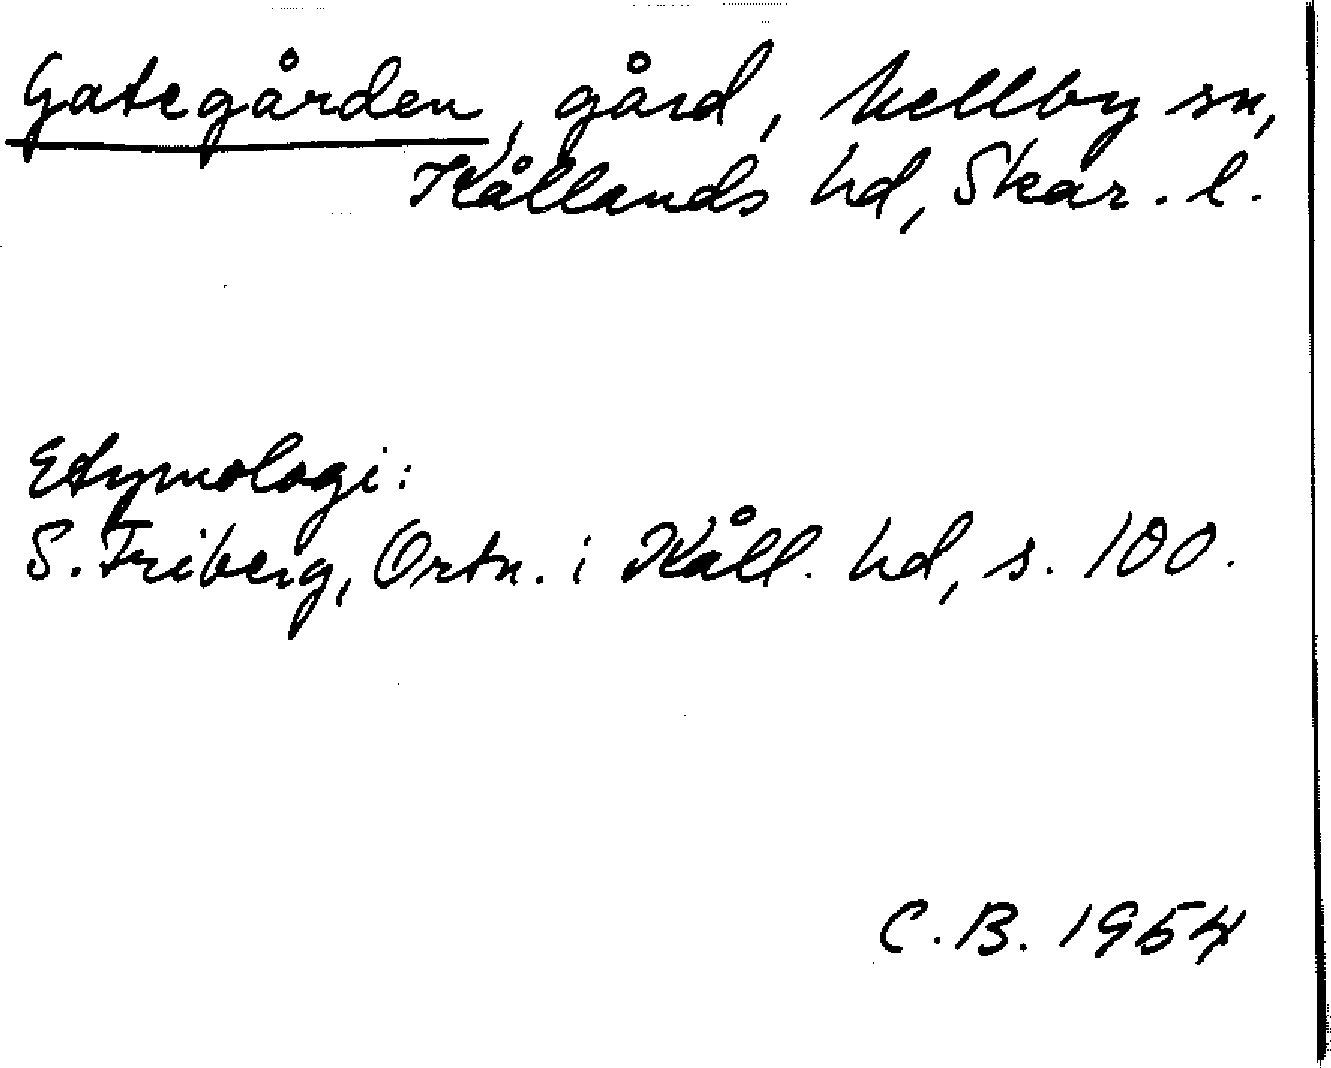 Gategården, gård, Mellby sn,
Kållands hd, Skar. l.
Etymologi:
S. Friberg, Ortn. i Kåll. hd, s. 100.
C.B. 1954